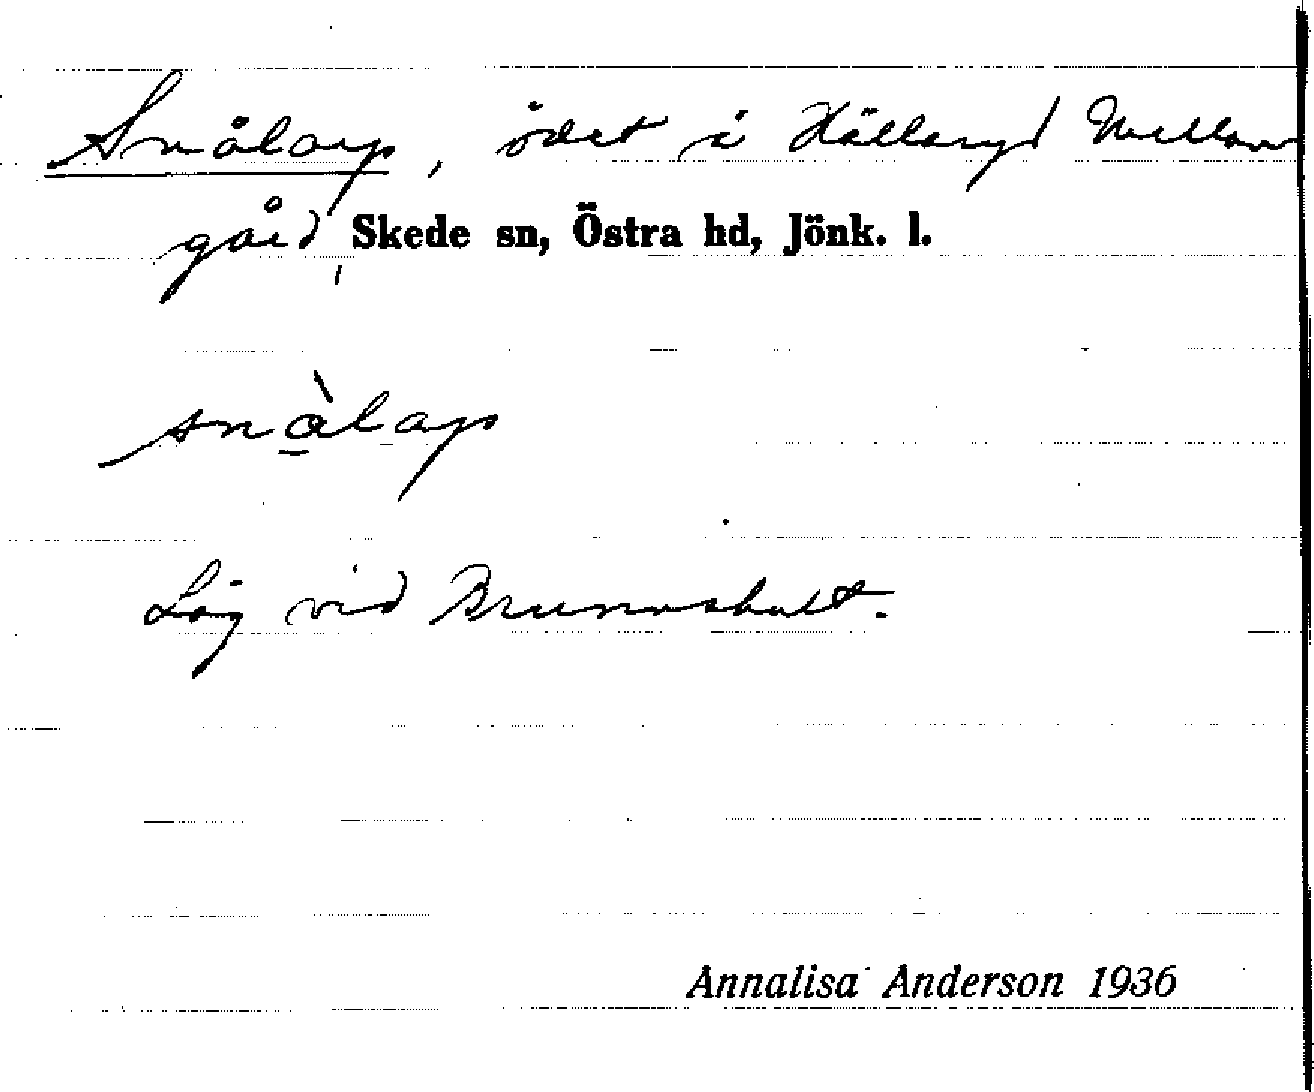 Snålarp, ödet å Hälleryd Mellan
gård, Skede sn, Östra hd, Jönk. l.
snàlap
Låg vid Brunnshult.
Annalisa Anderson 1936